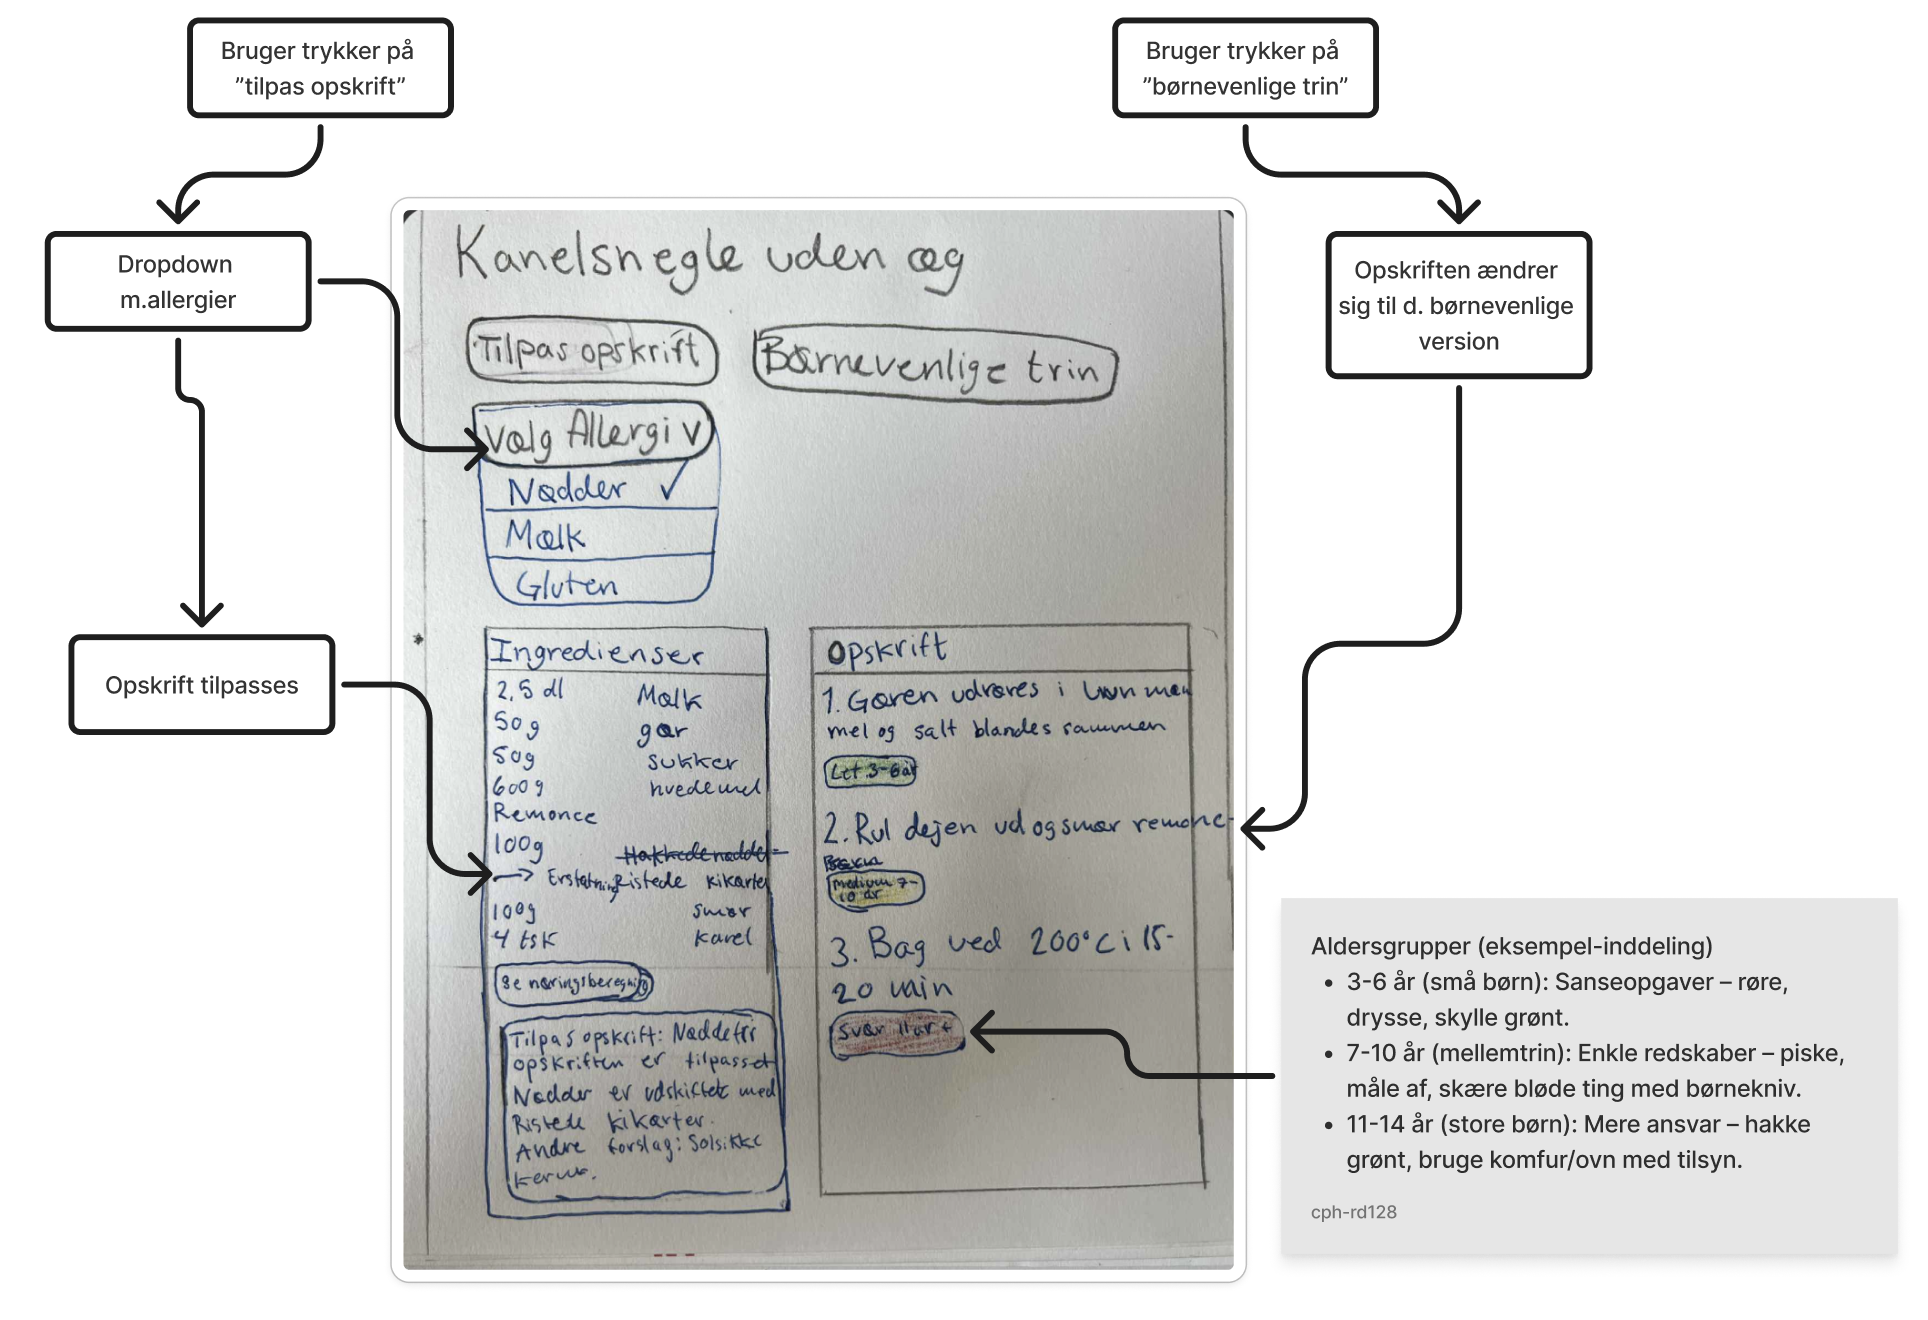 Bruger trykker på
”tilpas opskrift”
Bruger trykker på
”børnevenlige trin”
Dropdown
m.allergier
Opskriften ændrer
sig til d. børnevenlige
version
Opskrift tilpasses
Kanelsnegle uden æg
Tilpas opskrift
Børnevenlige trin
Vælg Allergi v
Nødder ✓
Mælk
Gluten
Ingredienser
2,5 dl Mælk
50g gær
50g sukker
600g hvedemel
Remonce
100g Hakkede nødder
→ Erstatning Ristede kikærter
100g smør
4 tsk kanel
Se næringsberegning
Tilpas opskrift: Nøddefri
opskriften er tilpasset
Nødder er udskiftet med
Ristede kikærter.
Andre forslag: Solsikke
kerner.
Opskrift
1. Gæren udrøres i
mel og salt blandes sammen
Let 3-6 år
2. Rul dejen ud og smør remonce
Medium 7-
10 år
3. Bag ved 200°C i 15-
20 min
Svær 11 år +
Aldersgrupper (eksempel-inddeling)
• 3-6 år (små børn): Sanseopgaver – røre,
drysse, skylle grønt.
• 7-10 år (mellemtrin): Enkle redskaber – piske,
måle af, skære bløde ting med børnekniv.
• 11-14 år (store børn): Mere ansvar – hakke
grønt, bruge komfur/ovn med tilsyn.
cph-rd128